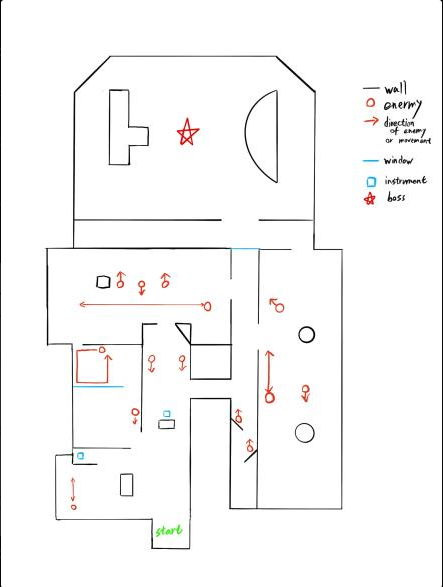 wall
enermy
direction
of enemy
or movement
window
instrument
boss
start